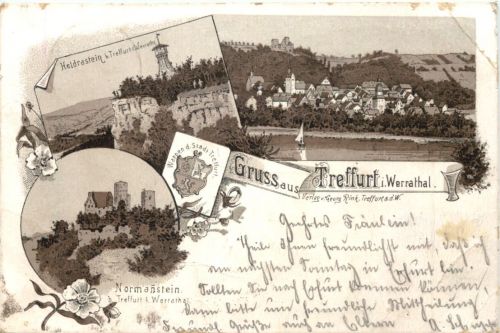 Heldrastein
b. Treffurt i. Werrathal
Wappen d. Stadt Treffurt.
Gruss aus Treffurt i. Werrathal.
Verlag v. Georg Rink, Treffurt a. d. W.
Normanstein.
b. Treffurt i. Werrathal
Geehrtes Fräulein!
Theile Ihnen freundlichst mit, daß ich
am nächsten Sonntag in Erfurt bin.
Sollten Sie nach Erfurt kommen können,
dann bitte um freundliche Mittheilung
Freundl. Grüße auch an Eltern